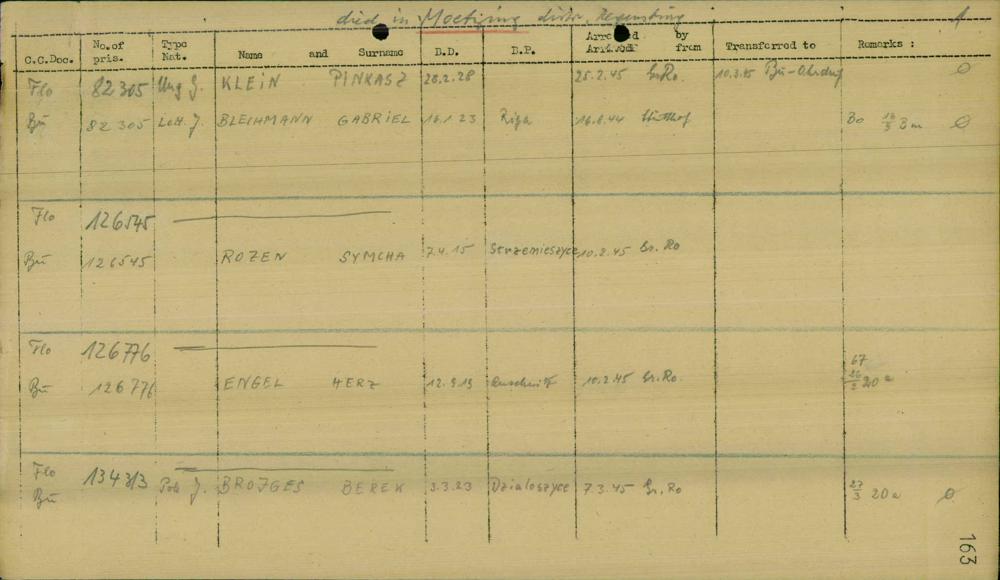 died in Moetzing distr. Regensburg
C.C.Doc. No.of pris. Type Nat. Name and Surname D.D. D.P. Arrived by from Transferred to Remarks :
Flo 82305 Ung J. KLEIN PINKASZ 28.2.28 25.2.45 Gr.Ro. 10.3.45 Bu-Ohrdruf
Bu 82305 Lett. J. BLEIHMANN GABRIEL 16.1.23 Riga 16.8.44 Stutthof Bo 16/3 Bm
Flo 126545
Bu 126545 ROZEN SYMCHA 7.4.15 Strzemieszyce 10.2.45 Gr. Ro
Flo 126776
Bu 126776 ENGEL HERZ 12.9.19 Auschwitz 10.2.45 Gr.Ro. 67 20a
Flo 134313
Bu Pole J. BROJGES BEREK 3.3.23 Dzialoszyce 7.3.45 Gr.Ro 27/3 20a
163